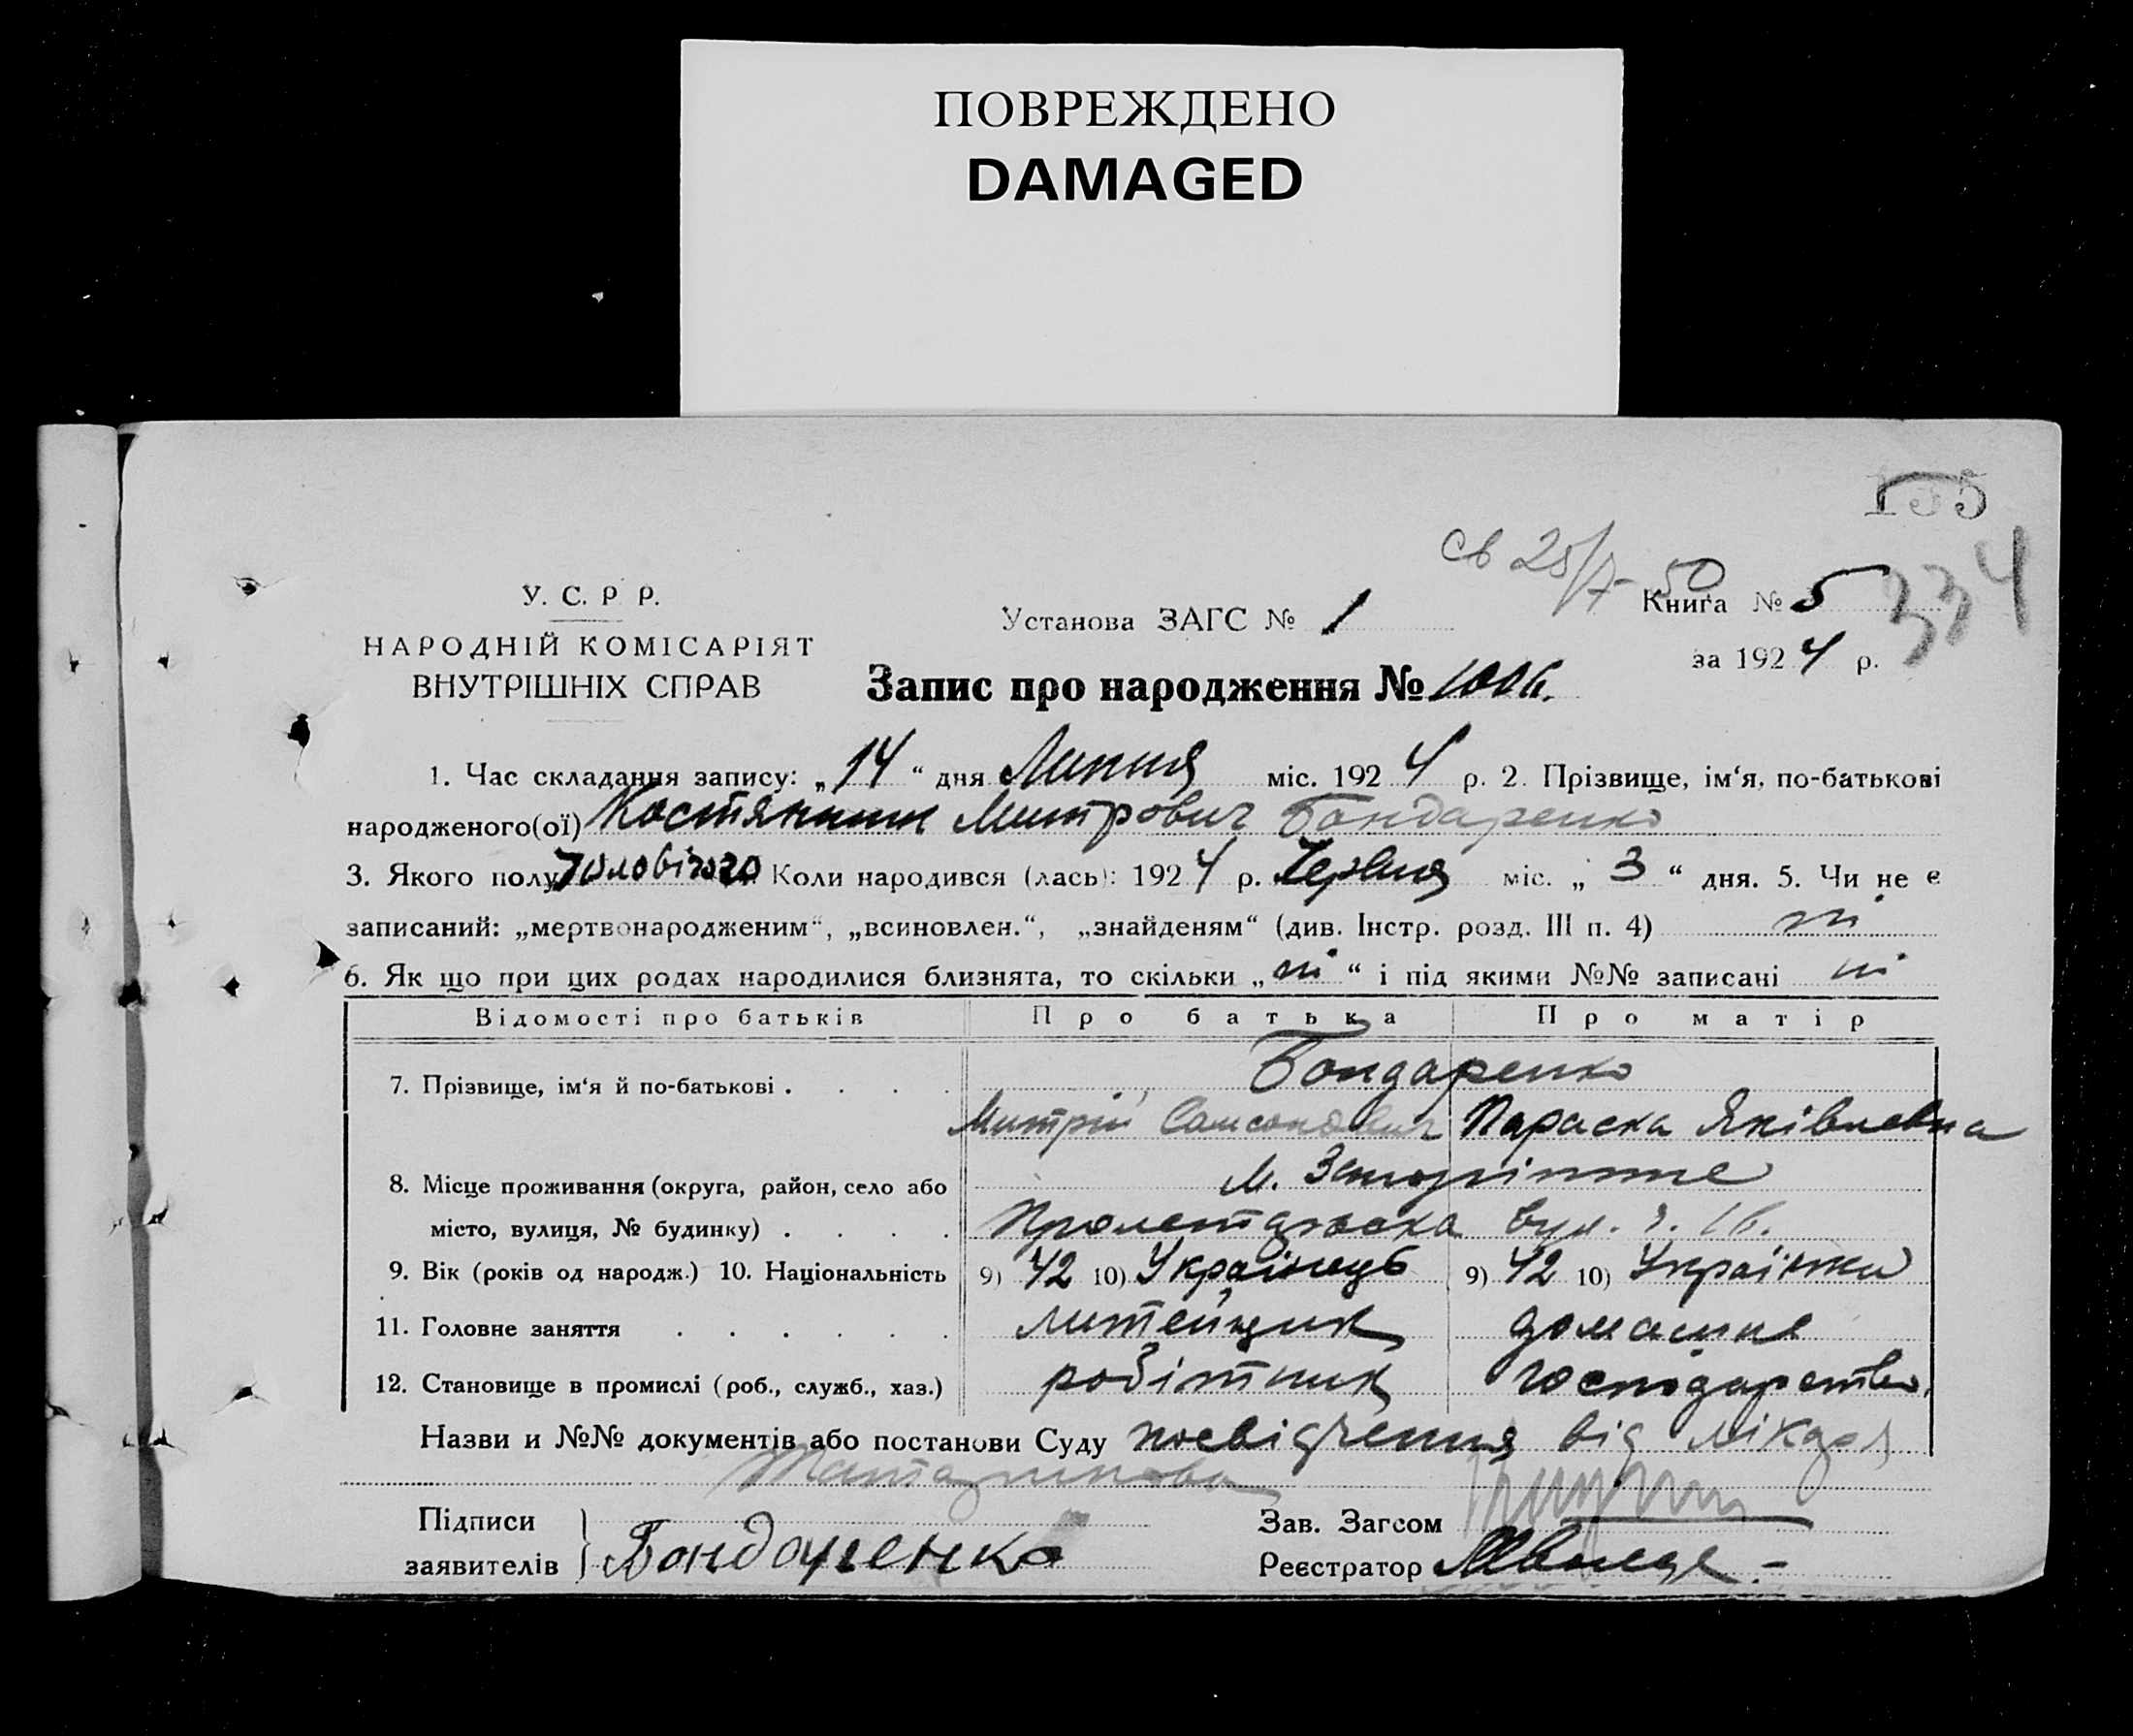 ПОВРЕЖДЕНО
DAMAGED
155
св 25/7-50
334
У. С. Р Р.
НАРОДНІЙ КОМІСАРІЯТ
ВНУТРІШНІХ СПРАВ
Установа ЗАГС № 1
Книга № 5
за 1924 р.
Запис про народження № 1006.
1. Час складання запису: „14“ дня Липня міс. 1924 р. 2. Прізвище, ім‘я, по-батькові
народженого(ої) Костянтин Митрович Бондаренко
3. Якого полу чоловічого Коли народився (лась): 1924 р. Червня міс. „3“ дня. 5. Чи не є
записаний: „мертвонародженим“, „всиновлен.“, „знайденям“ (див. Інстр. розд. III п. 4) ні
6. Як що при цих родах народилися близнята, то скільки „ні“ і під якими №№ записані ні
Відомості про батьків Про батька Про матір
7. Прізвище, ім‘я й по-батькові . . . . Бондаренко
Митрій Самсонович Параска Яківлевна
8. Місце проживання (округа, район, село або м. Запоріжже
місто, вулиця, № будинку) . . . . Пролетарська вул. 16.
9. Вік (років од народж.) 10. Національність 9) 42 10) Українець 9) 42 10) Українка
11. Головне заняття . . . . . . литейщик домашнє
12. Становище в промислі (роб., служб., хаз.) робітник господарство.
Назви и №№ документів або постанови Суду посвідчення від лікаря
Підписи
заявителів Бондаренко
Зав. Загсом
Реєстратор